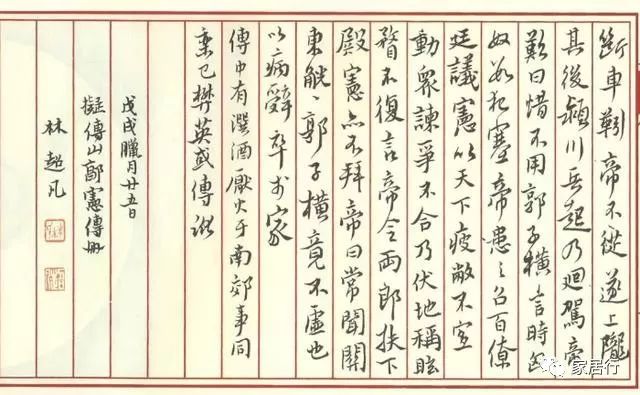 斷車靷帝不從遂上隴
其後潁川兵起乃迴駕帝
歎曰惜不用郭子橫言時匈
奴數犯塞帝患之召百僚
廷議憲以天下疲敝不宜
動眾諫爭不合乃伏地稱眩
瞀不復言帝令兩郎扶下
殿憲亦不拜帝曰常聞關
東觥觥郭子橫竟不虛也
以病辭卒於家
傳中有潠酒厭火于南郊事同
欒巴樊英或傳訛
戊戌臘月廿五日
擬傅山郭憲傳冊
林超凡
家居行